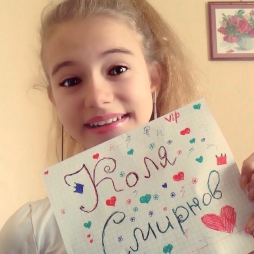 VIP
Коля
Смирнов